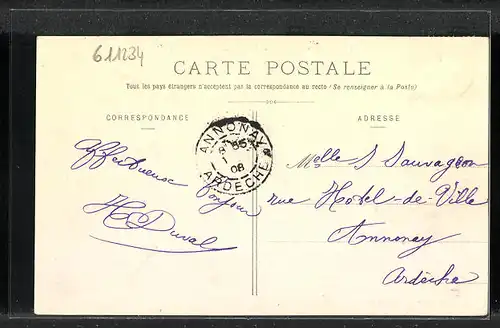 611234
CARTE POSTALE
Tous les pays étrangers n'acceptent pas la correspondance au recto (Se renseigner à la Poste)
CORRESPONDANCE
ADRESSE
Affectueux
bonjour
H Duval
ANNONAY
1
08
ARDECHE
Melle S Sauvageon
rue Hotel-de-Ville
Annonay
Ardèche